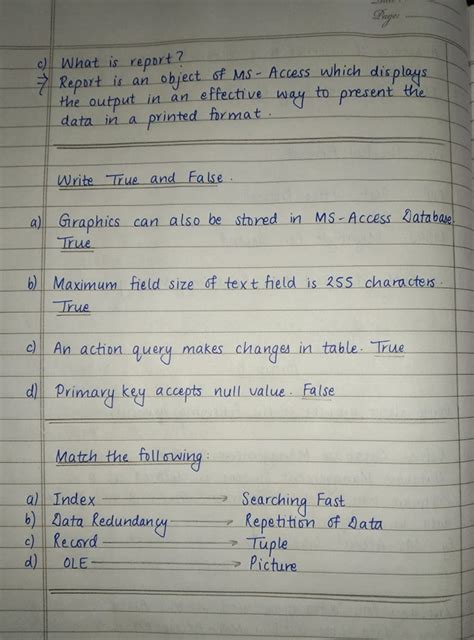 Page:
c) What is report?
⇒ Report is an object of MS-Access which displays
the output in an effective way to present the
data in a printed format.
Write True and False.
a) Graphics can also be stored in MS-Access Database.
True
b) Maximum field size of text field is 255 characters.
True
c) An action query makes changes in table. True
d) Primary key accepts null value. False
Match the following:
a) Index → Searching Fast
b) Data Redundancy → Repetition of Data
c) Record → Tuple
d) OLE → Picture